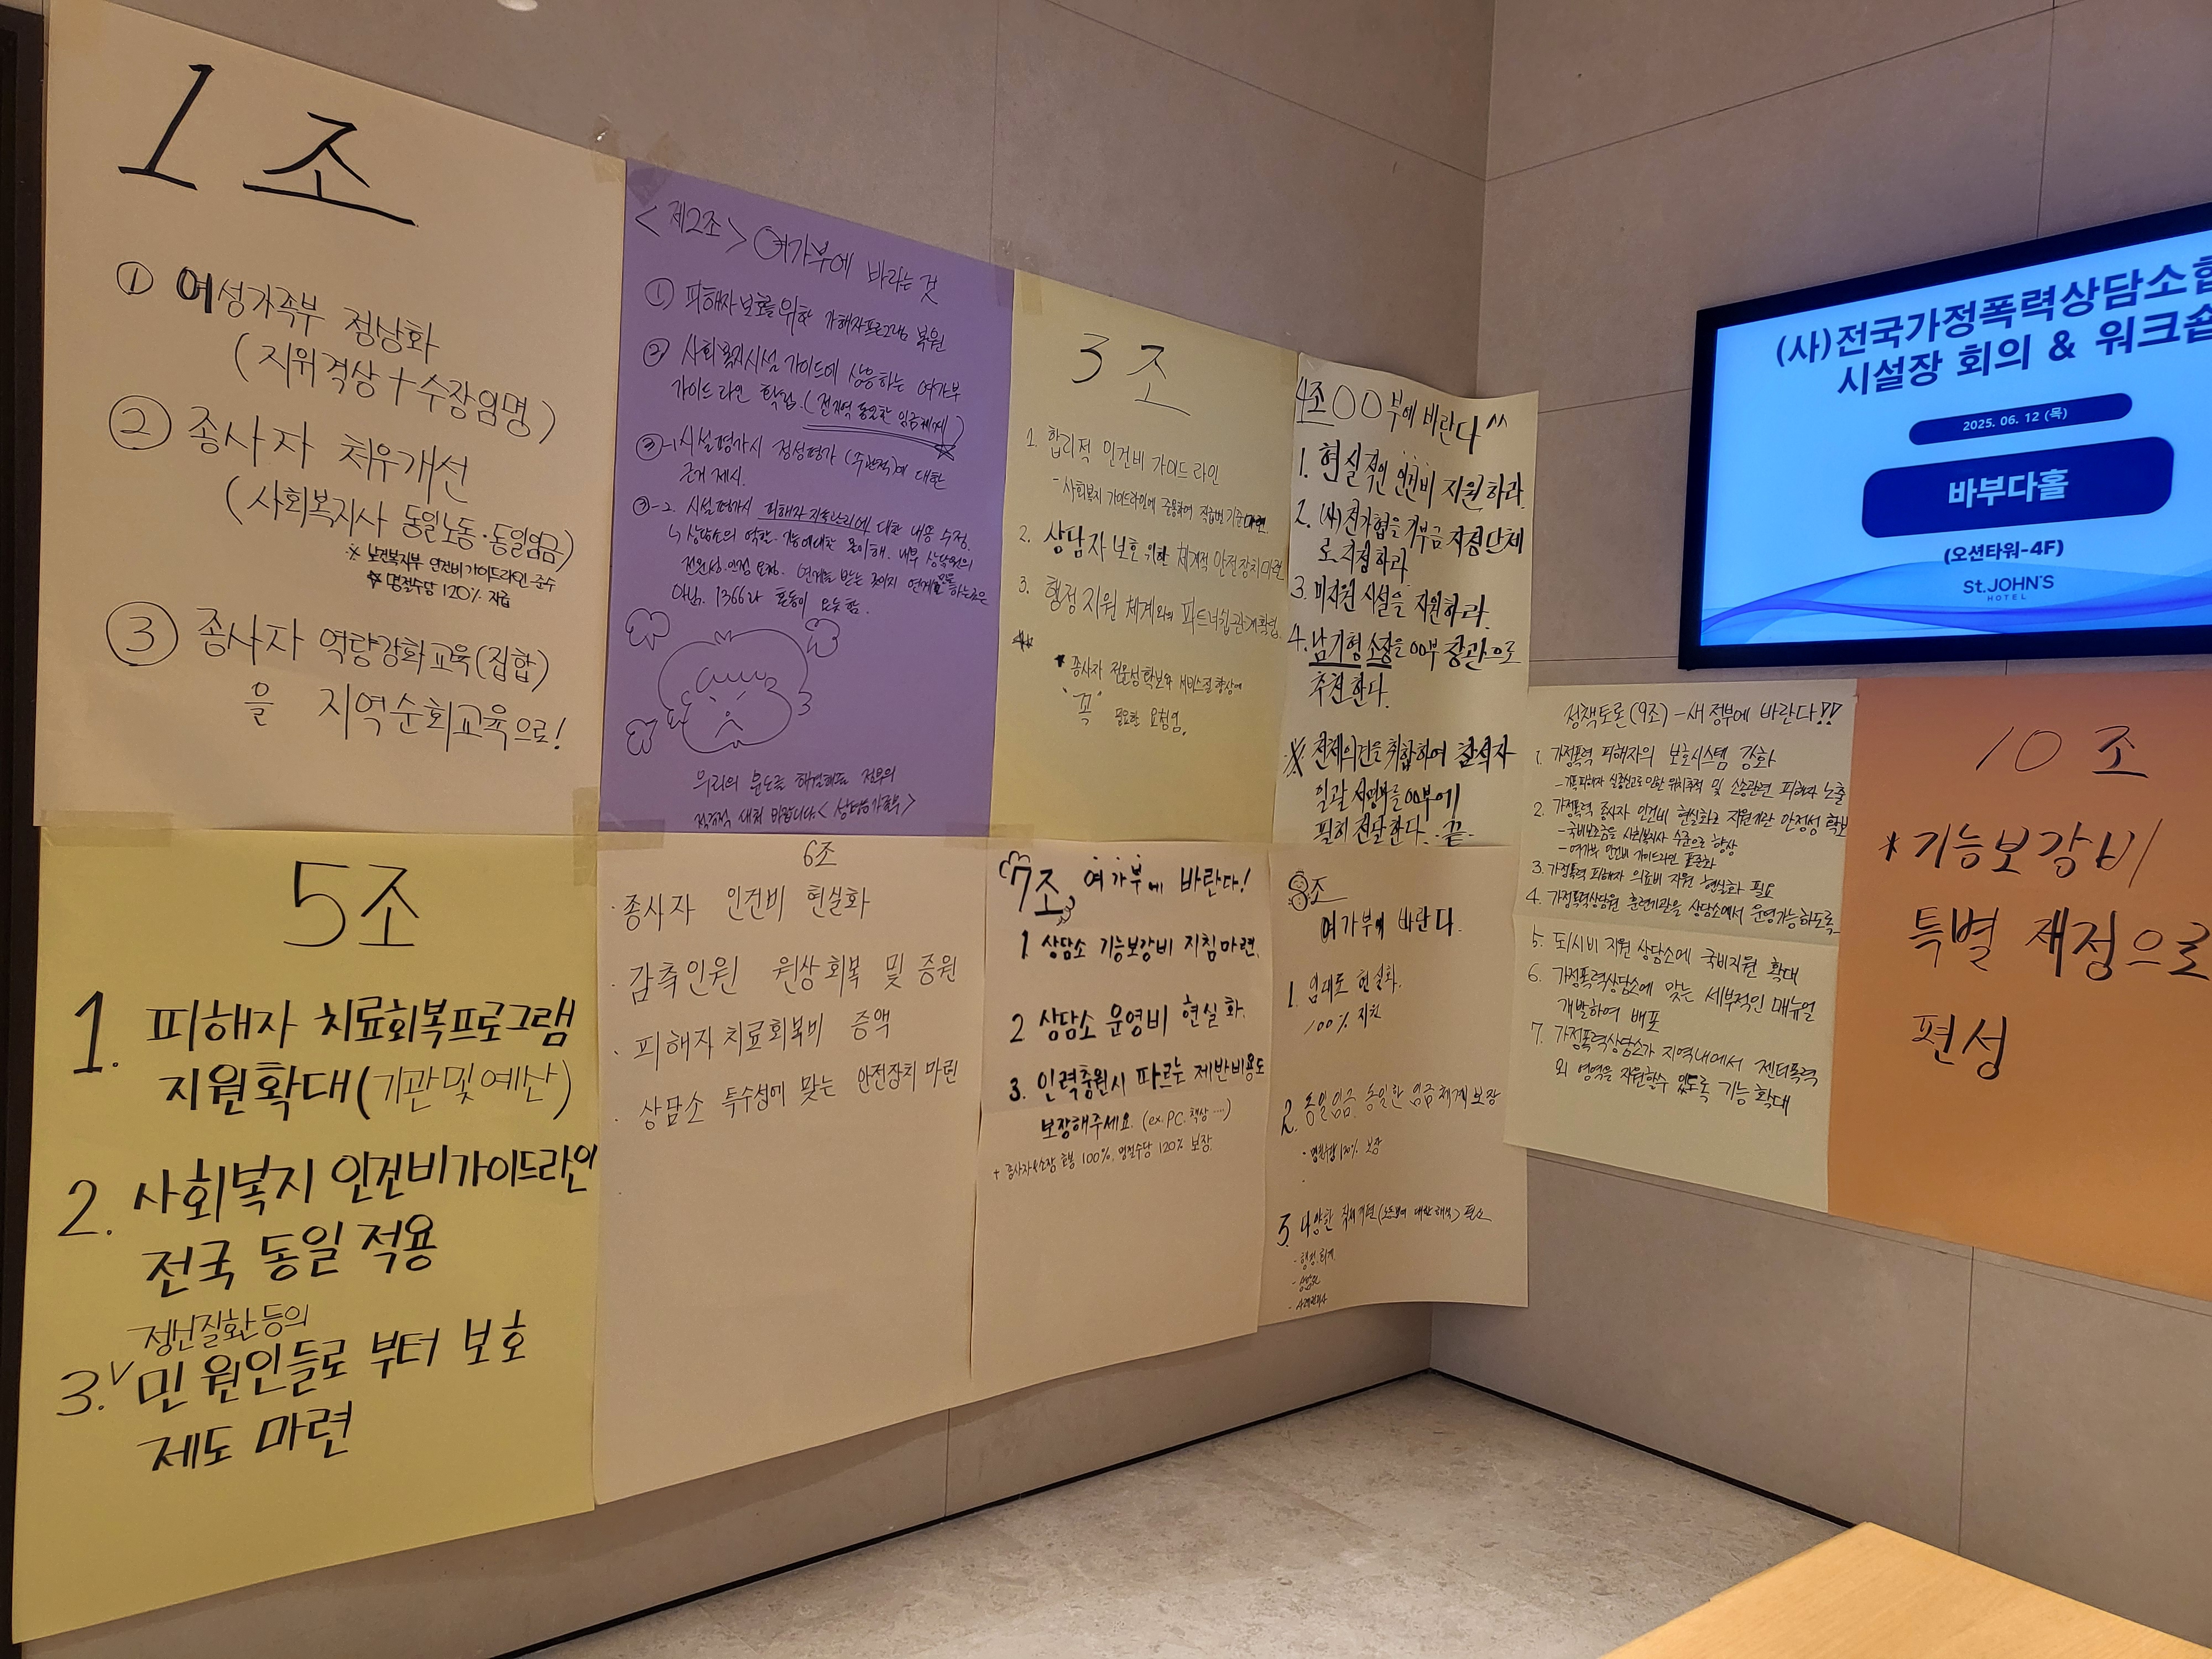 1조
① 여성가족부 정상화
(지위격상+수장임명)
② 종사자 처우개선
(사회복지사 동일노동·동일임금)
※ 보건복지부 인건비가이드라인 준수
★ 명절수당 120% 지급
③ 종사자 역량강화교육(집합)
을 지역순회교육으로!
<제2조> 여가부에 바라는 것
① 피해자보호를위한 가해자프로그램 복원
② 사회복지시설 가이드에 상응하는 여가부
가이드라인 확립. (전지역 동일한 임금체계)
③-1 시설평가시 정성평가 (주관적)에 대한
근거 제시.
③-2. 시설평가시 피해자 지속관리에 대한 내용 수정.
↳ 상담소의 역할. 기능에대한 몰이해. 내부 상담원의
전문성.인정 요청. 연계를 받는 곳이지 연계를 하는곳은
아님. 1366과 혼동이
우리의 분노를 해결해줄 정부의
적극적 대처 바랍니다.
3조
1. 합리적 인건비 가이드라인
- 사회복지 가이드라인에 준용하여 직급별 기준마련.
2. 상담자 보호 위한 체계적 안전장치마련
3. 행정 지원 체계와의 파트너쉽관계확립.
* 종사자 전문성확보와 서비스질 향상에
"꼭" 필요한 요청임.
4조 OO부에 바란다^^
1. 현실적인 인건비 지원하라.
2. (사)전가협을 기부금 지정단체
로 지정하라
3. 미지원 시설을 지원하라.
4. 남기형 소장을 OO부 장관으로
추천한다.
※ 전체의견을 취합하여 참석자
일괄 서명바를 OO부에
필히 전달한다. -끝-
5조
1. 피해자 치료회복프로그램
지원확대(기관및예산)
2. 사회복지 인건비가이드라인
전국 동일 적용
정신질환 등의
3.∨민원인들로 부터 보호
제도 마련
6조
· 종사자 인건비 현실화
· 감축인원 원상회복 및 증원
· 피해자 치료회복비 증액
· 상담소 특수성에 맞는 안전장치 마련
7조, 여가부에 바란다!
1. 상담소 기능보강비 지침마련.
2 상담소 운영비 현실화.
3. 인력충원시 따르는 제반비용도
보장해주세요. (ex.PC.책상....)
+ 종사자&소장 호봉 100%, 명절수당 120% 보장.
8조
여가부에 바란다.
1. 임대료 현실화.
100% 지원
2. 동일임금 동일한 임금체계 보장
· 명절수당 120% 보장
3. 다양한 직책
- 행정.회계
- 상담원
- 사례관리사
정책토론(9조) - 새 정부에 바란다!!
1. 가정폭력 피해자의 보호시스템 강화
- 가폭피해자 실종신고로 인한 위치추적 및 소송관련 피해자 노출
2. 가정폭력 종사자 인건비 현실화로 지원기관 안정성 확보
- 국비보조금을 사회복지사 수준으로 향상
- 여가부 인건비 가이드라인 표준화
3. 가정폭력 피해자 의료비 지원 현실화 필요
4. 가정폭력상담원 훈련기관을 상담소에서 운영가능하도록
5. 도/시비 지원 상담소에 국비지원 확대
6. 가정폭력상담소에 맞는 세부적인 매뉴얼
개발하여 배포
7. 가정폭력상담소가 지역내에서 젠더폭력
외 영역을 지원할수 있도록 기능 확대
10조
* 기능보강비
특별 재정으로
편성
(사)전국가정폭력상담소협
시설장 회의 & 워크숍
2025. 06. 12 (목)
바부다홀
(오션타워-4F)
St.JOHN'S
HOTEL